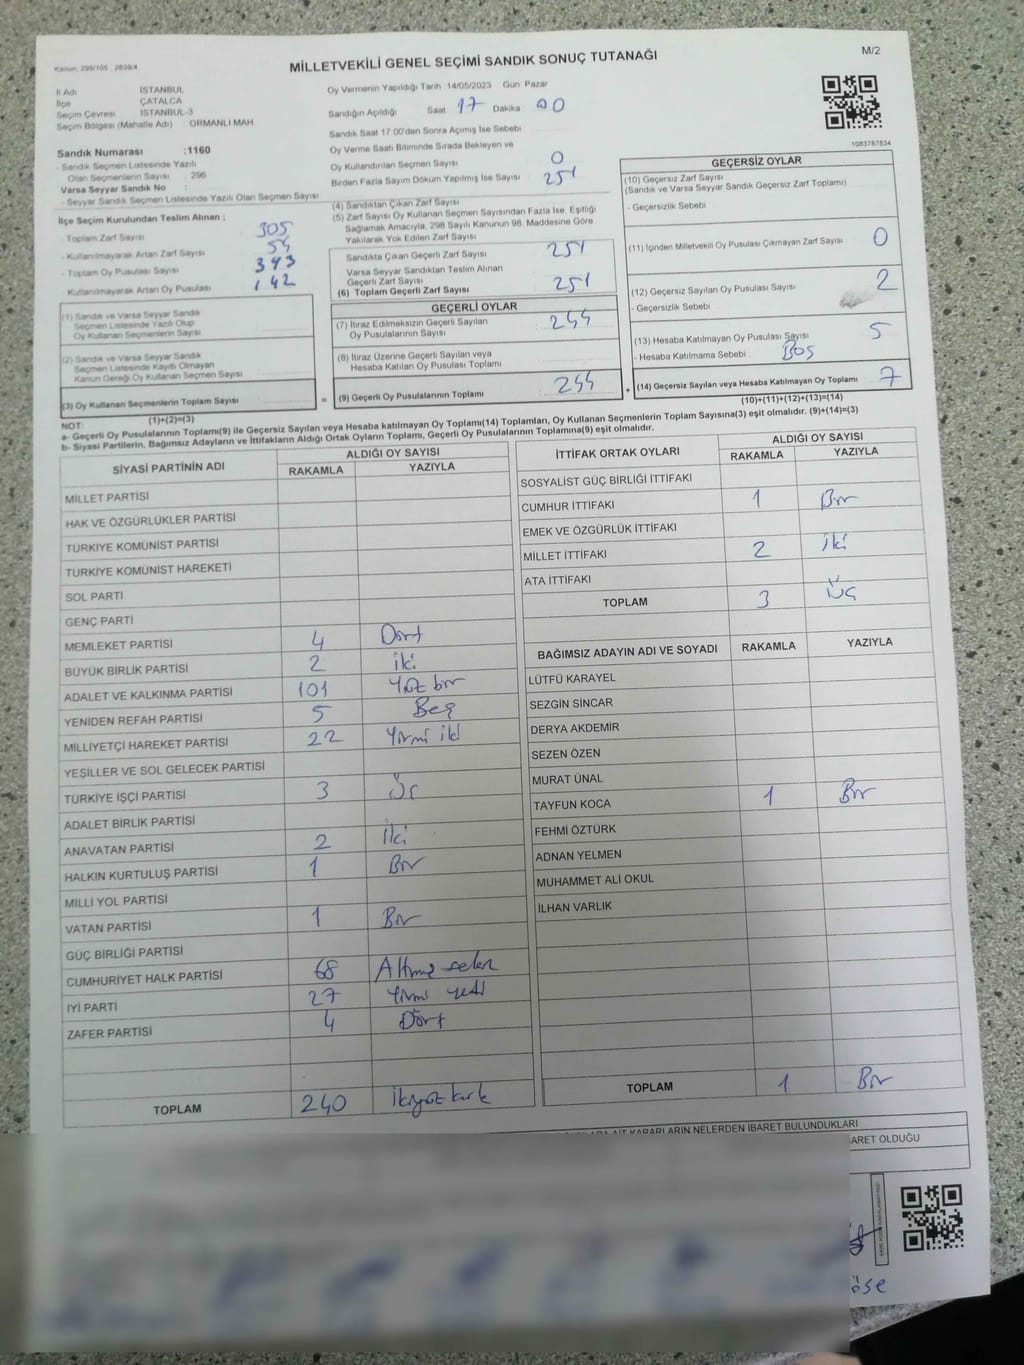 Kanun: 298/105 , 2839/4
MİLLETVEKİLİ GENEL SEÇİMİ SANDIK SONUÇ TUTANAĞI
M/2
İl Adı İSTANBUL
İlçe ÇATALCA
Seçim Çevresi İSTANBUL-3
Seçim Bölgesi (Mahalle Adı) ORMANLI MAH.
Sandık Numarası :1160
- Sandık Seçmen Listesinde Yazılı
Olan Seçmenlerin Sayısı : 296
Varsa Seyyar Sandık No :
- Seyyar Sandık Seçmen Listesinde Yazılı Olan Seçmen Sayısı
İlçe Seçim Kurulundan Teslim Alınan ;
- Toplam Zarf Sayısı 305
- Kullanılmayarak Artan Zarf Sayısı 54
- Toplam Oy Pusulası Sayısı 393
- Kullanılmayarak Artan Oy Pusulası 142
(1) Sandık ve Varsa Seyyar Sandık
Seçmen Listesinde Yazılı Olup
Oy Kullanan Seçmenlerin Sayısı
(2) Sandık ve Varsa Seyyar Sandık
Seçmen Listesinde Kayıtlı Olmayan
Kanun Gereği Oy Kullanan Seçmen Sayısı
(3) Oy Kullanan Seçmenlerin Toplam Sayısı
(1)+(2)=(3)
Oy Vermenin Yapıldığı Tarih :14/05/2023 Gün: Pazar
Sandığın Açıldığı Saat 17 Dakika 00
Sandık Saat 17.00'den Sonra Açımış İse Sebebi
Oy Verme Saati Bitiminde Sırada Bekleyen ve
Oy Kullandırılan Seçmen Sayısı 0
Birden Fazla Sayım Döküm Yapılmış İse Sayısı
(4) Sandıktan Çıkan Zarf Sayısı 251
(5) Zarf Sayısı Oy Kullanan Seçmen Sayısından Fazla İse, Eşitliği
Sağlamak Amacıyla, 298 Sayılı Kanunun 98. Maddesine Göre
Yakılarak Yok Edilen Zarf Sayısı
Sandıkta Çıkan Geçerli Zarf Sayısı 251
Varsa Seyyar Sandıktan Teslim Alınan
Geçerli Zarf Sayısı
(6) Toplam Geçerli Zarf Sayısı 251
GEÇERLİ OYLAR
(7) İtiraz Edilmeksizin Geçerli Sayılan
Oy Pusulalarının Sayısı 244
(8) İtiraz Üzerine Geçerli Sayılan veya
Hesaba Katılan Oy Pusulası Toplamı
= (9) Geçerli Oy Pusulalarının Toplamı 244 +
1083787834
GEÇERSİZ OYLAR
(10) Geçersiz Zarf Sayısı
(Sandık ve Varsa Seyyar Sandık Geçersiz Zarf Toplamı)
- Geçersizlik Sebebi
(11) İçinden Milletvekili Oy Pusulası Çıkmayan Zarf Sayısı 0
(12) Geçersiz Sayılan Oy Pusulası Sayısı 2
- Geçersizlik Sebebi
(13) Hesaba Katılmayan Oy Pusulası Sayısı 5
- Hesaba Katılmama Sebebi BOŞ
(14) Geçersiz Sayılan veya Hesaba Katılmayan Oy Toplamı 7
(10)+(11)+(12)+(13)=(14)
NOT:
a- Geçerli Oy Pusulalarının Toplamı(9) ile Geçersiz Sayılan veya Hesaba katılmayan Oy Toplamı(14) Toplamları, Oy Kullanan Seçmenlerin Toplam Sayısına(3) eşit olmalıdır. (9)+(14)=(3)
b- Siyasi Partilerin, Bağımsız Adayların ve İttifakların Aldığı Ortak Oyların Toplamı, Geçerli Oy Pusulalarının Toplamına(9) eşit olmalıdır.
SİYASİ PARTİNİN ADI ALDIĞI OY SAYISI
RAKAMLA YAZIYLA
MİLLET PARTİSİ
HAK VE ÖZGÜRLÜKLER PARTİSİ
TÜRKİYE KOMÜNİST PARTİSİ
TÜRKİYE KOMÜNİST HAREKETİ
SOL PARTİ
GENÇ PARTİ
MEMLEKET PARTİSİ 4 Dört
BÜYÜK BİRLİK PARTİSİ 2 iki
ADALET VE KALKINMA PARTİSİ 101 Yüz bir
YENİDEN REFAH PARTİSİ 5 Beş
MİLLİYETÇİ HAREKET PARTİSİ 22 Yirmi iki
YEŞİLLER VE SOL GELECEK PARTİSİ
TÜRKİYE İŞÇİ PARTİSİ 3 Üç
ADALET BİRLİK PARTİSİ
ANAVATAN PARTİSİ 2 İki
HALKIN KURTULUŞ PARTİSİ 1 Bir
MİLLİ YOL PARTİSİ
VATAN PARTİSİ 1 Bir
GÜÇ BİRLİĞİ PARTİSİ
CUMHURİYET HALK PARTİSİ 68 Altmış sekiz
İYİ PARTİ 27 Yirmi yedi
ZAFER PARTİSİ 4 Dört
TOPLAM 240 İkiyüz kırk
İTTİFAK ORTAK OYLARI ALDIĞI OY SAYISI
RAKAMLA YAZIYLA
SOSYALİST GÜÇ BİRLİĞİ İTTİFAKI
CUMHUR İTTİFAKI 1 Bir
EMEK VE ÖZGÜRLÜK İTTİFAKI
MİLLET İTTİFAKI 2 İki
ATA İTTİFAKI
TOPLAM 3 Üç
BAĞIMSIZ ADAYIN ADI VE SOYADI RAKAMLA YAZIYLA
LÜTFÜ KARAYEL
SEZGİN SİNCAR
DERYA AKDEMİR
SEZEN ÖZEN
MURAT ÜNAL
TAYFUN KOCA 1 Bir
FEHMİ ÖZTÜRK
ADNAN YELMEN
MUHAMMET ALİ OKUL
İLHAN VARLIK
TOPLAM 1 Bir
KARARLARIN NELERDEN İBARET BULUNDUKLARI
OLDUĞU